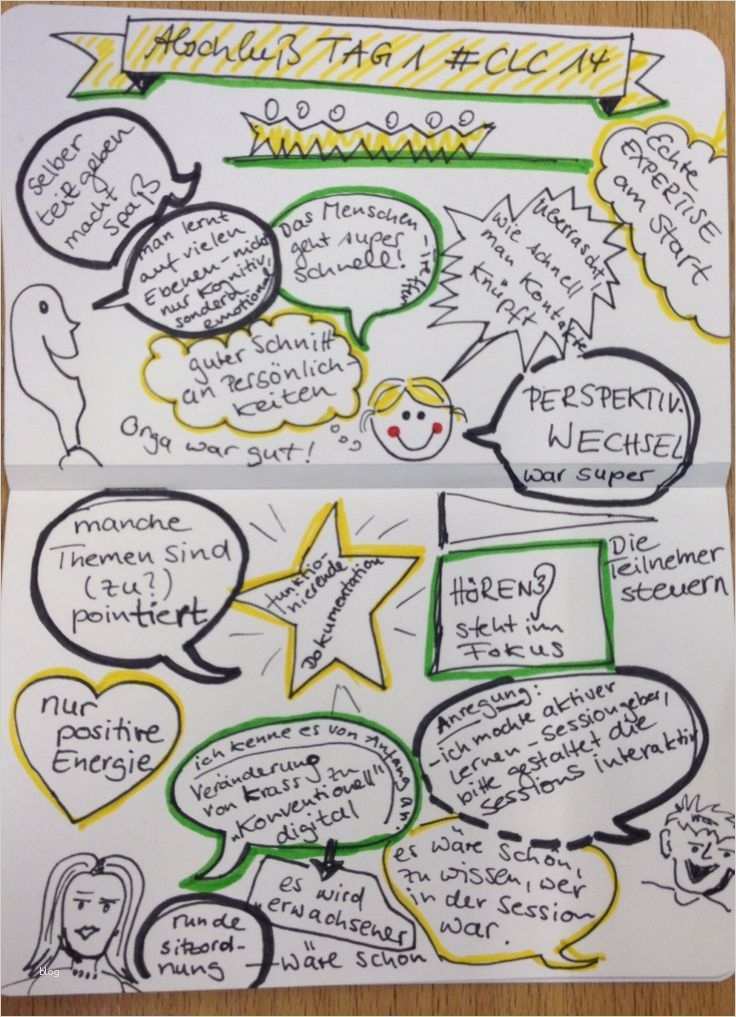 Abschluß TAG 1 #CLC 14
selber
teilgeben
macht
Spaß
man lernt
auf vielen
Ebenen - nicht
nur kognitiv,
sondern
emotional
Das Menschen-
geht super
schnell!
überrascht,
wie schnell
man Kontakte
knüpft
Echte
EXPERTISE
am Start
guter Schnitt
an Persönlich-
keiten
Orga war gut!
PERSPEKTIV.
WECHSEL
war super
manche
Themen sind
(zu?)
pointiert
funktio-
nierende
Dokumentation
HÖREN
steht im
Fokus
Die
Teilnemer
steuern
nur
positive
Energie
ich kenne es von Anfang an:
Veränderung
von krass zu
"Konventionell"
digital
es wird
"erwachsener"
Anregung:
- ich möchte aktiver
lernen - Sessiongeber,
bitte gestaltet die
Sessions interaktiv
es wäre schön,
zu wissen, wer
in der Session
war.
runde
sitzord-
nung - wäre schön
blog